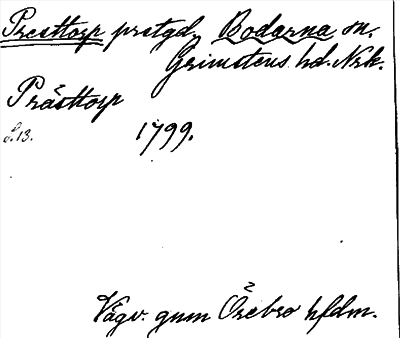 Presttorp prstgd, Bodarna sn.
Grimstens hd. Nrk.
Prästtorp
S. 13. 1799.
Vägv. gnm Örebro hfdm.